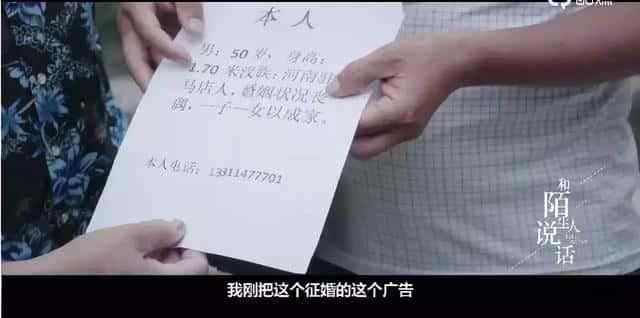 本人
男：50岁，身高：
1.70米汉族：河南驻
马店人，婚姻状况丧
偶，一子一女以成家。
本人电话：13311477701
和
陌生人
说
话
我刚把这个征婚的这个广告